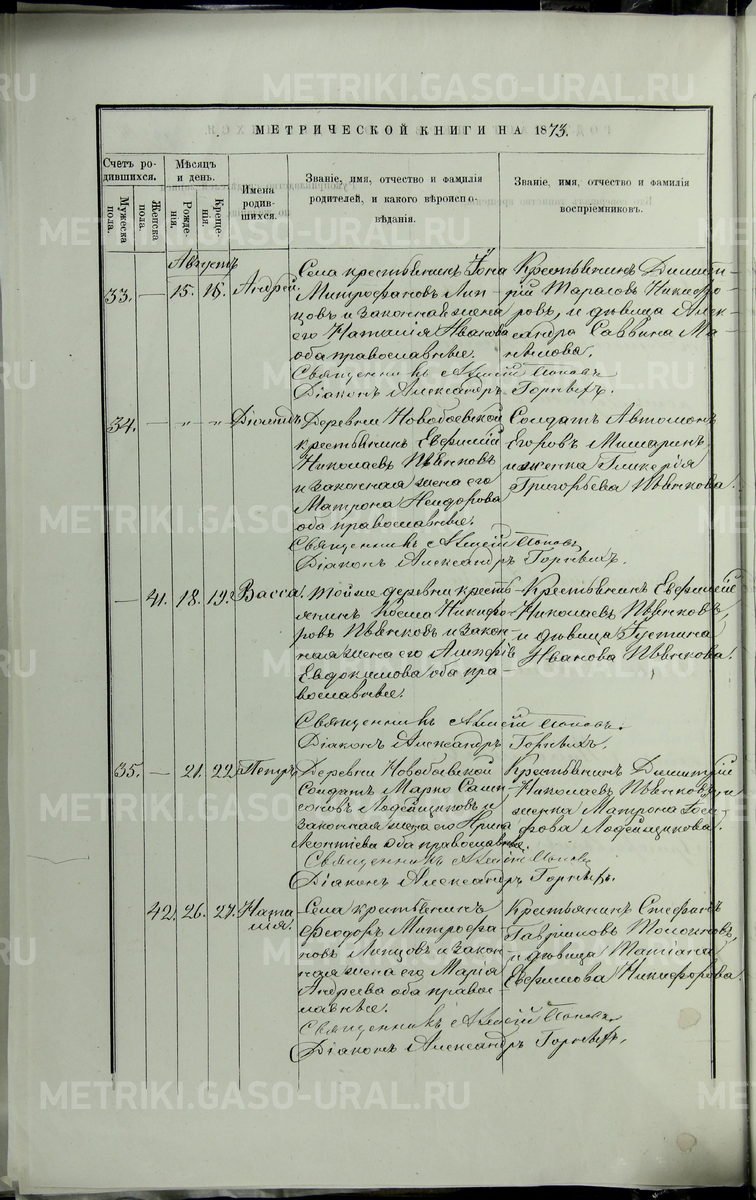 МЕТРИЧЕСКОЙ КНИГИ НА 1873.
Счетъ родившихся.
Мѣсяцъ и день.
Имена родившихся.
Званіе, имя, отчество и фамилія родителей, и какого вѣроисповѣданія.
Званіе, имя, отчество и фамилія воспріемниковъ.
Мужеска пола.
Женска пола.
Рожденія.
Крещенія.
Августъ
33. — 15. 16. Андрей.
Села крестьянинъ Іона
Митрофановъ Липцовъ и законная жена
его Наталія Иванова
оба православные.
Крестьянинъ Димитрій Тарасовъ Никифоровъ, и дѣвица Александра Саввина
Священникъ Алексій Поповъ
Діаконъ Александръ Горныхъ.
34. — „ „
Деревни Новобоевской
крестьянинъ Евфимій
Николаевъ Пѣвчковъ
и законная жена его
Матрона
оба православные.
Солдатъ Автомонъ
Егоровъ Мишаринъ,
и женка Гликерія
Григорьева Пѣвчкова.
Священникъ Алексій Поповъ
Діаконъ Александръ Горныхъ.
— 41. 18. 19. Васса.
Тойже деревни крестьянинъ Косма Никифоровъ Пѣвчковъ и законная жена его
Евдокимова оба православные.
Крестьянинъ Евфимій
Николаевъ Пѣвчковъ,
и дѣвица Густина
Иванова Пѣвчкова.
Священникъ Алексій Поповъ.
Діаконъ Александръ Горныхъ.
35. — 21. 22. Петръ.
Деревни Новобоевской
Солдатъ Марко Сампсоновъ Лодейщиковъ и
законная жена его Ирина
Леонтіева оба православные.
Крестьянинъ Димитрій
Николаевъ Пѣвчковъ, и
женка Матрона
Лодейщикова.
Священникъ Алексій Поповъ
Діаконъ Александръ Горныхъ.
42. 26. 27. Наталія.
Села крестьянинъ
Феодоръ Митрофановъ Липцовъ и законная жена его Марія
Андреева оба православные.
Крестьянинъ Стефанъ
Гавриловъ
и дѣвица Татіана
Евфимова Никифорова.
Священникъ Алексій Поповъ.
Діаконъ Александръ Горныхъ.
METRIKI.GASO-URAL.RU